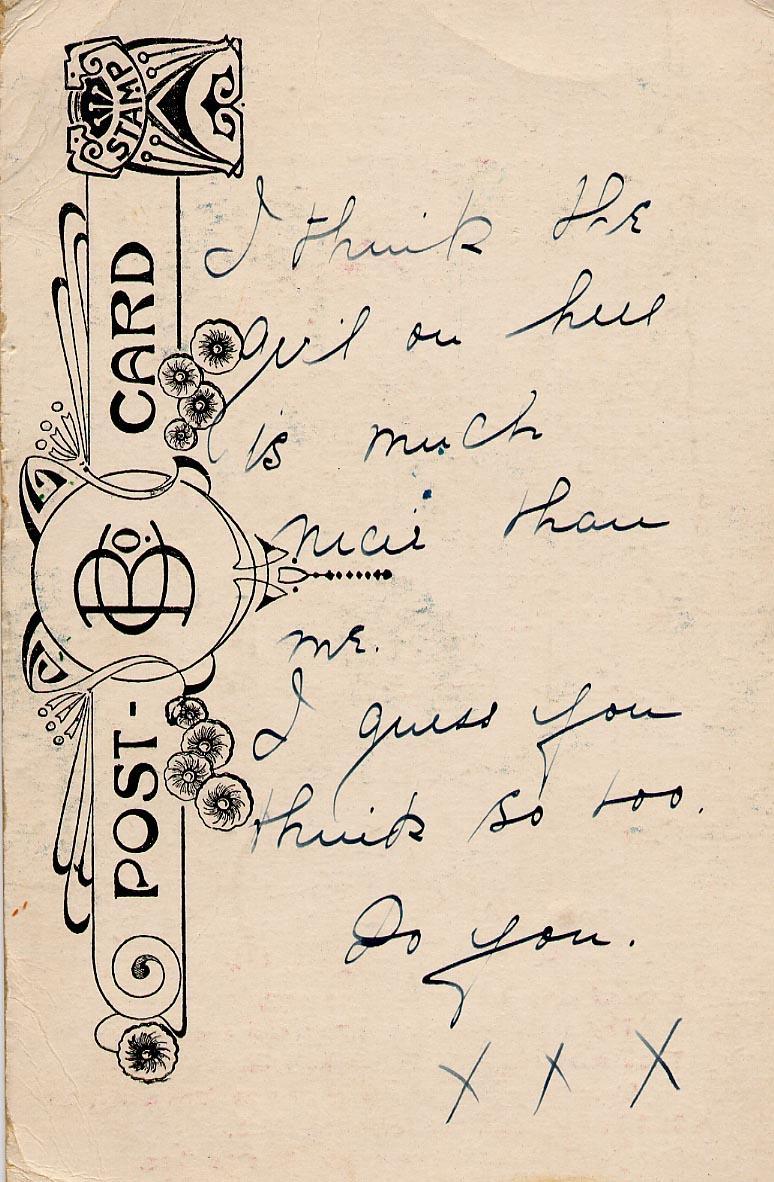 STAMP
POST-CARD
B Co.
I think the
girl on here
is much
nicer than
me.
I guess you
think so too.
Do you.
X X X